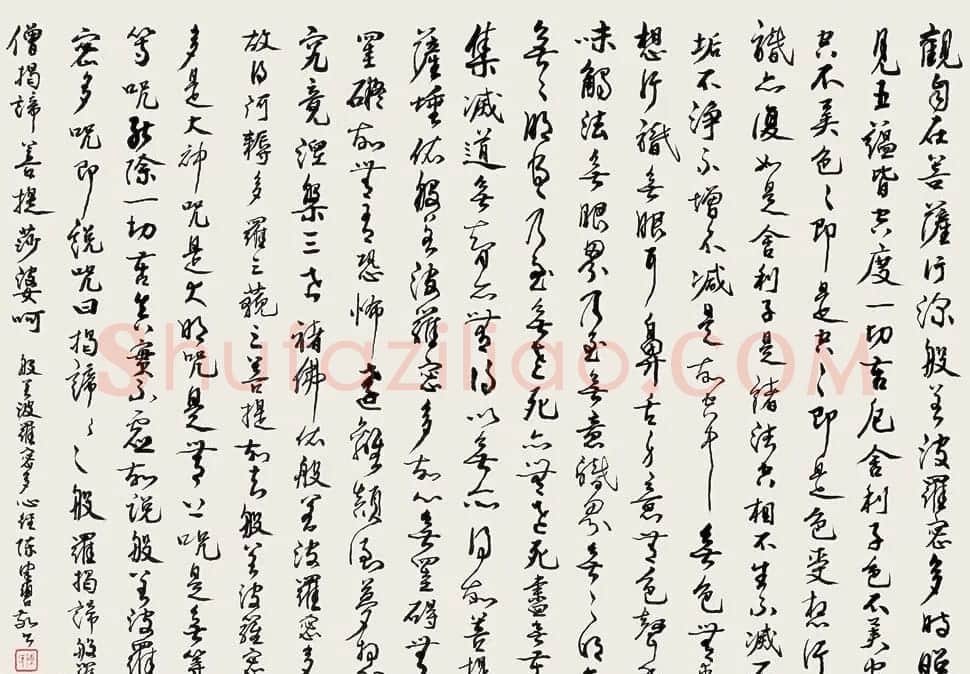 觀自在菩薩行深般若波羅密多時照
見五蘊皆空度一切苦厄舍利子色不異空
空不異色々即是空々即是色受想行
識亦復如是舍利子是諸法空相不生不滅不
垢不淨不增不減是故空中無色無受
想行識無眼耳鼻舌身意無色聲香
味觸法無眼界乃至無意識界無々明
無々明盡乃至無老死亦無老死盡無苦
集滅道無智亦無得以無所得故菩提
薩埵依般若波羅密多故心無罣碍無
罣礙故無有恐怖遠離顛倒夢想
究竟涅槃三世諸佛依般若波羅密多
故得阿耨多羅三藐三菩提故知般若波羅密
多是大神咒是大明咒是無上咒是無等
等咒能除一切苦真實不虛故説般若波羅
密多咒即説咒曰揭諦々々般羅揭諦般羅
僧揭諦菩提莎婆呵 般若波羅密多心經
Shufaziliao.COM